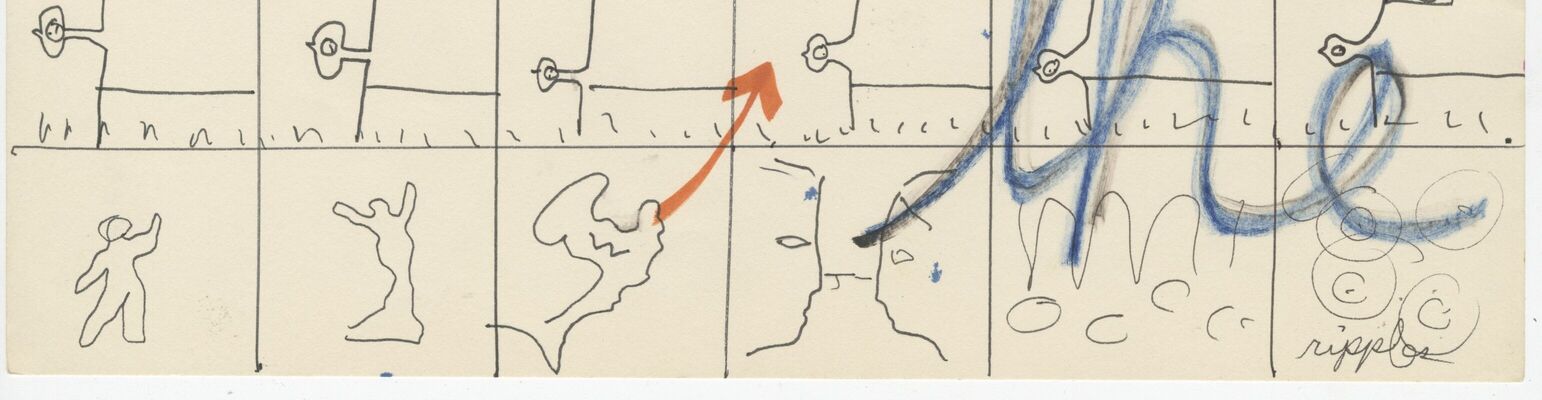 the
ripples